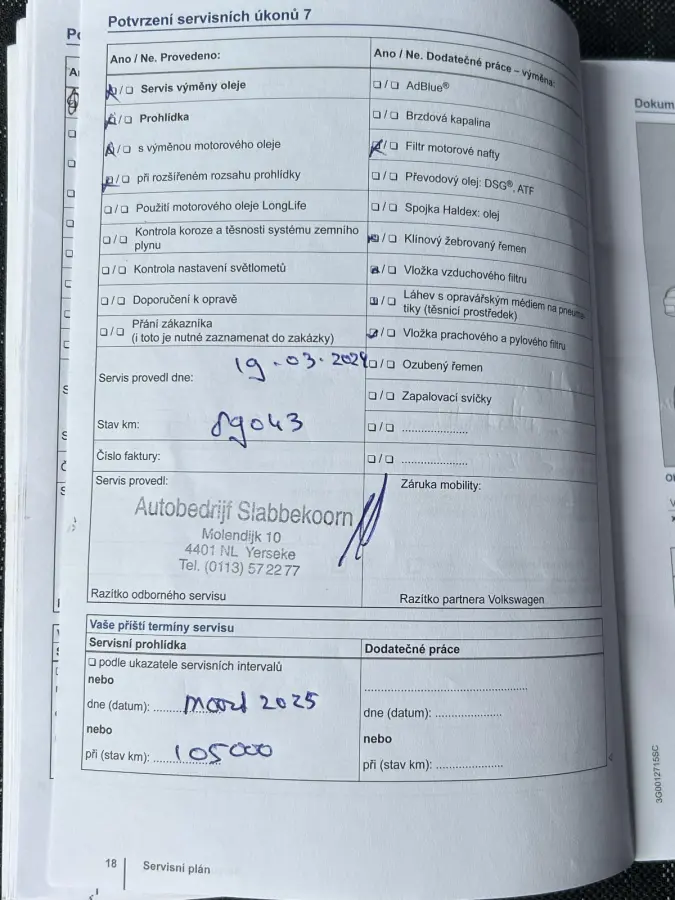 Potvrzení servisních úkonů 7
Ano / Ne. Provedeno:
❏ / ❏ Servis výměny oleje
❏ / ❏ Prohlídka
❏ / ❏ s výměnou motorového oleje
❏ / ❏ při rozšířeném rozsahu prohlídky
❏ / ❏ Použití motorového oleje LongLife
❏ / ❏ Kontrola koroze a těsnosti systému zemního
plynu
❏ / ❏ Kontrola nastavení světlometů
❏ / ❏ Doporučení k opravě
❏ / ❏ Přání zákazníka
(i toto je nutné zaznamenat do zakázky)
Servis provedl dne: 19-03-2024
Stav km: 89043
Číslo faktury:
Servis provedl:
Autobedrijf Slabbekoorn
Molendijk 10
4401 NL Yerseke
Tel. (0113) 57 22 77
Razítko odborného servisu
Ano / Ne. Dodatečné práce – výměna:
❏ / ❏ AdBlue®
❏ / ❏ Brzdová kapalina
❏ / ❏ Filtr motorové nafty
❏ / ❏ Převodový olej: DSG®, ATF
❏ / ❏ Spojka Haldex: olej
❏ / ❏ Klínový žebrovaný řemen
❏ / ❏ Vložka vzduchového filtru
❏ / ❏ Láhev s opravářským médiem na pneuma-
tiky (těsnicí prostředek)
❏ / ❏ Vložka prachového a pylového filtru
❏ / ❏ Ozubený řemen
❏ / ❏ Zapalovací svíčky
❏ / ❏ ......................
❏ / ❏ ......................
Záruka mobility:
Razítko partnera Volkswagen
Vaše příští termíny servisu
Servisní prohlídka
❏ podle ukazatele servisních intervalů
nebo
dne (datum): maart 2025
nebo
při (stav km): 105000
Dodatečné práce
......................................................
dne (datum): ......................
nebo
při (stav km): ......................
18 Servisní plán
Dokum
3G0012715SC